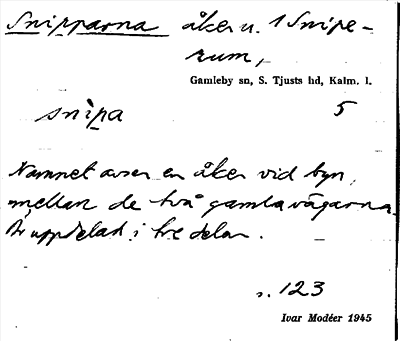 Snipparna åker u. 1 Snipe-
rum,
Gamleby sn, S. Tjusts hd, Kalm. l.
snìpa 5
Namnet avser en åker vid byn,
mellan de två gamla vägarna.
Är uppdelad i tre delar.
s. 123
Ivar Modéer 1945